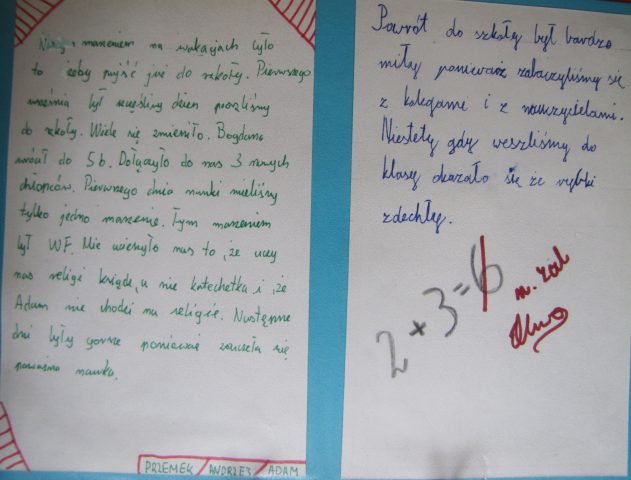 Naszym marzeniem na wakacjach było
to żeby pójść już do szkoły. Pierwszego
września był szczęśliwy dzień poszliśmy
do szkoły. Wiele się zmieniło. Bogdana
wróił do 5b. Dołączyło do nas 3 nowych
chłopców. Pierwszego dnia nauki mieliśmy
tylko jedno marzenie. Tym marzeniem
był WF. Nie ucieszyło nas to, że uczy
nas religi ksiądz, a nie katechetka i, że
Adam nie chodzi na religię. Następne
dni były gorsze ponieważ zaczeła się
poważna nauka.
PRZEMEK / ANDRZEJ / ADAM
Powrót do szkoły był bardzo
miły ponieważ zobaczyliśmy się
z kolegami i z nauczycielami.
Niestety gdy weszliśmy do
klasy okazało się że rybki
zdechły.
2 + 3 = 6